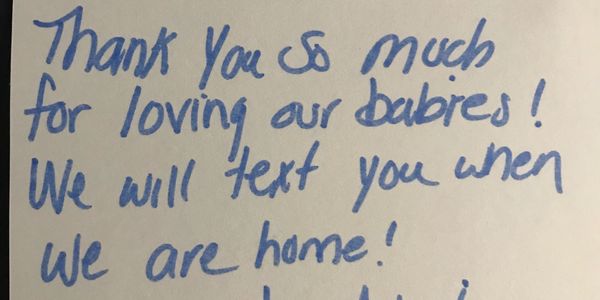 Thank you so much
for loving our babies!
We will text you when
we are home!